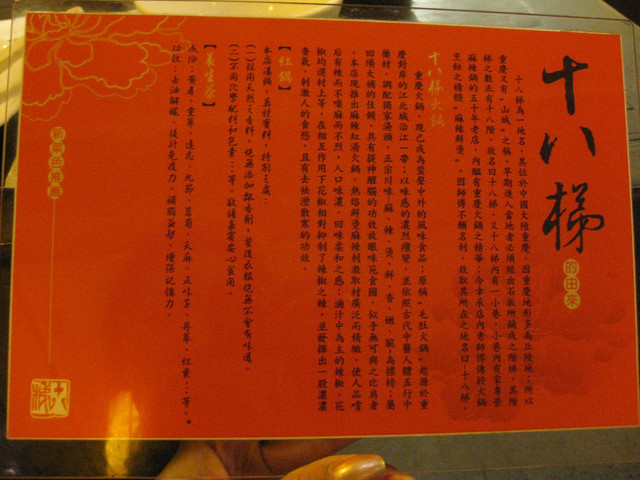 十八梯
的由來
十八梯為一地名,其位於中國大陸重慶,因重慶地形多為丘陵地;所以
重慶又有"山城"之稱。早期進入當地者必須經由石板所鋪成之階梯,其階
梯之數正有十八階,故名曰十八梯,又十八梯內有一小巷,小巷內有家專營
麻辣鍋的五十年老店,內醞有重慶火鍋之精華;今幸承店內老師傅傳授火鍋
烹飪之精髓"麻辣鮮燙",因師傅不願名利,故取其所在之地名曰"十八梯。
十八梯火鍋
重慶火鍋,現已成為盛譽中外的風味食品;原稱"毛肚火鍋"起源於重
慶對岸的江北城沿江一帶;以味感的濃烈殘變,並依照古代中醫人體五行中
藥材,調配獨家湯頭,正宗川味"麻、辣、燙、鮮、香、嫩、脆"為標榜;屬
四陽大補的佳餚,具有提神醒腦的功效放眼味苑食國,似乎無可與之比肩者
。本店現推出麻辣紅湯火鍋,熟焰鮮燙麻辣刺激取材廣泛而精緻,使人品嚐
后有辣而不嗓麻而不烈,入口味濃,回味柔和之感;滷汁中為主的辣椒、花
椒均選材上等,在相互作用下花椒相對抑制了辣椒之辣,並發揮出一股濃濃
香氣,刺激人的食慾,且有去袪溼散寒的功效。
【紅鍋】
本店湯頭,真材實料,特別之處:
(一)採用天然之香料,絕無添加飄香劑,餐後衣服絕無不會有味道。
(二)不用化學配料和色素...等,敬請嘉賓安心食用。
【養生茶】
成份:黃耆、黨蔘、遠志、九節、菖蒲、天麻、五味子、丹蔘、紅棗...等。
功效:去油解膩、提升免疫力、補腦益智、增強記憶力。
新菜色推薦
十八梯